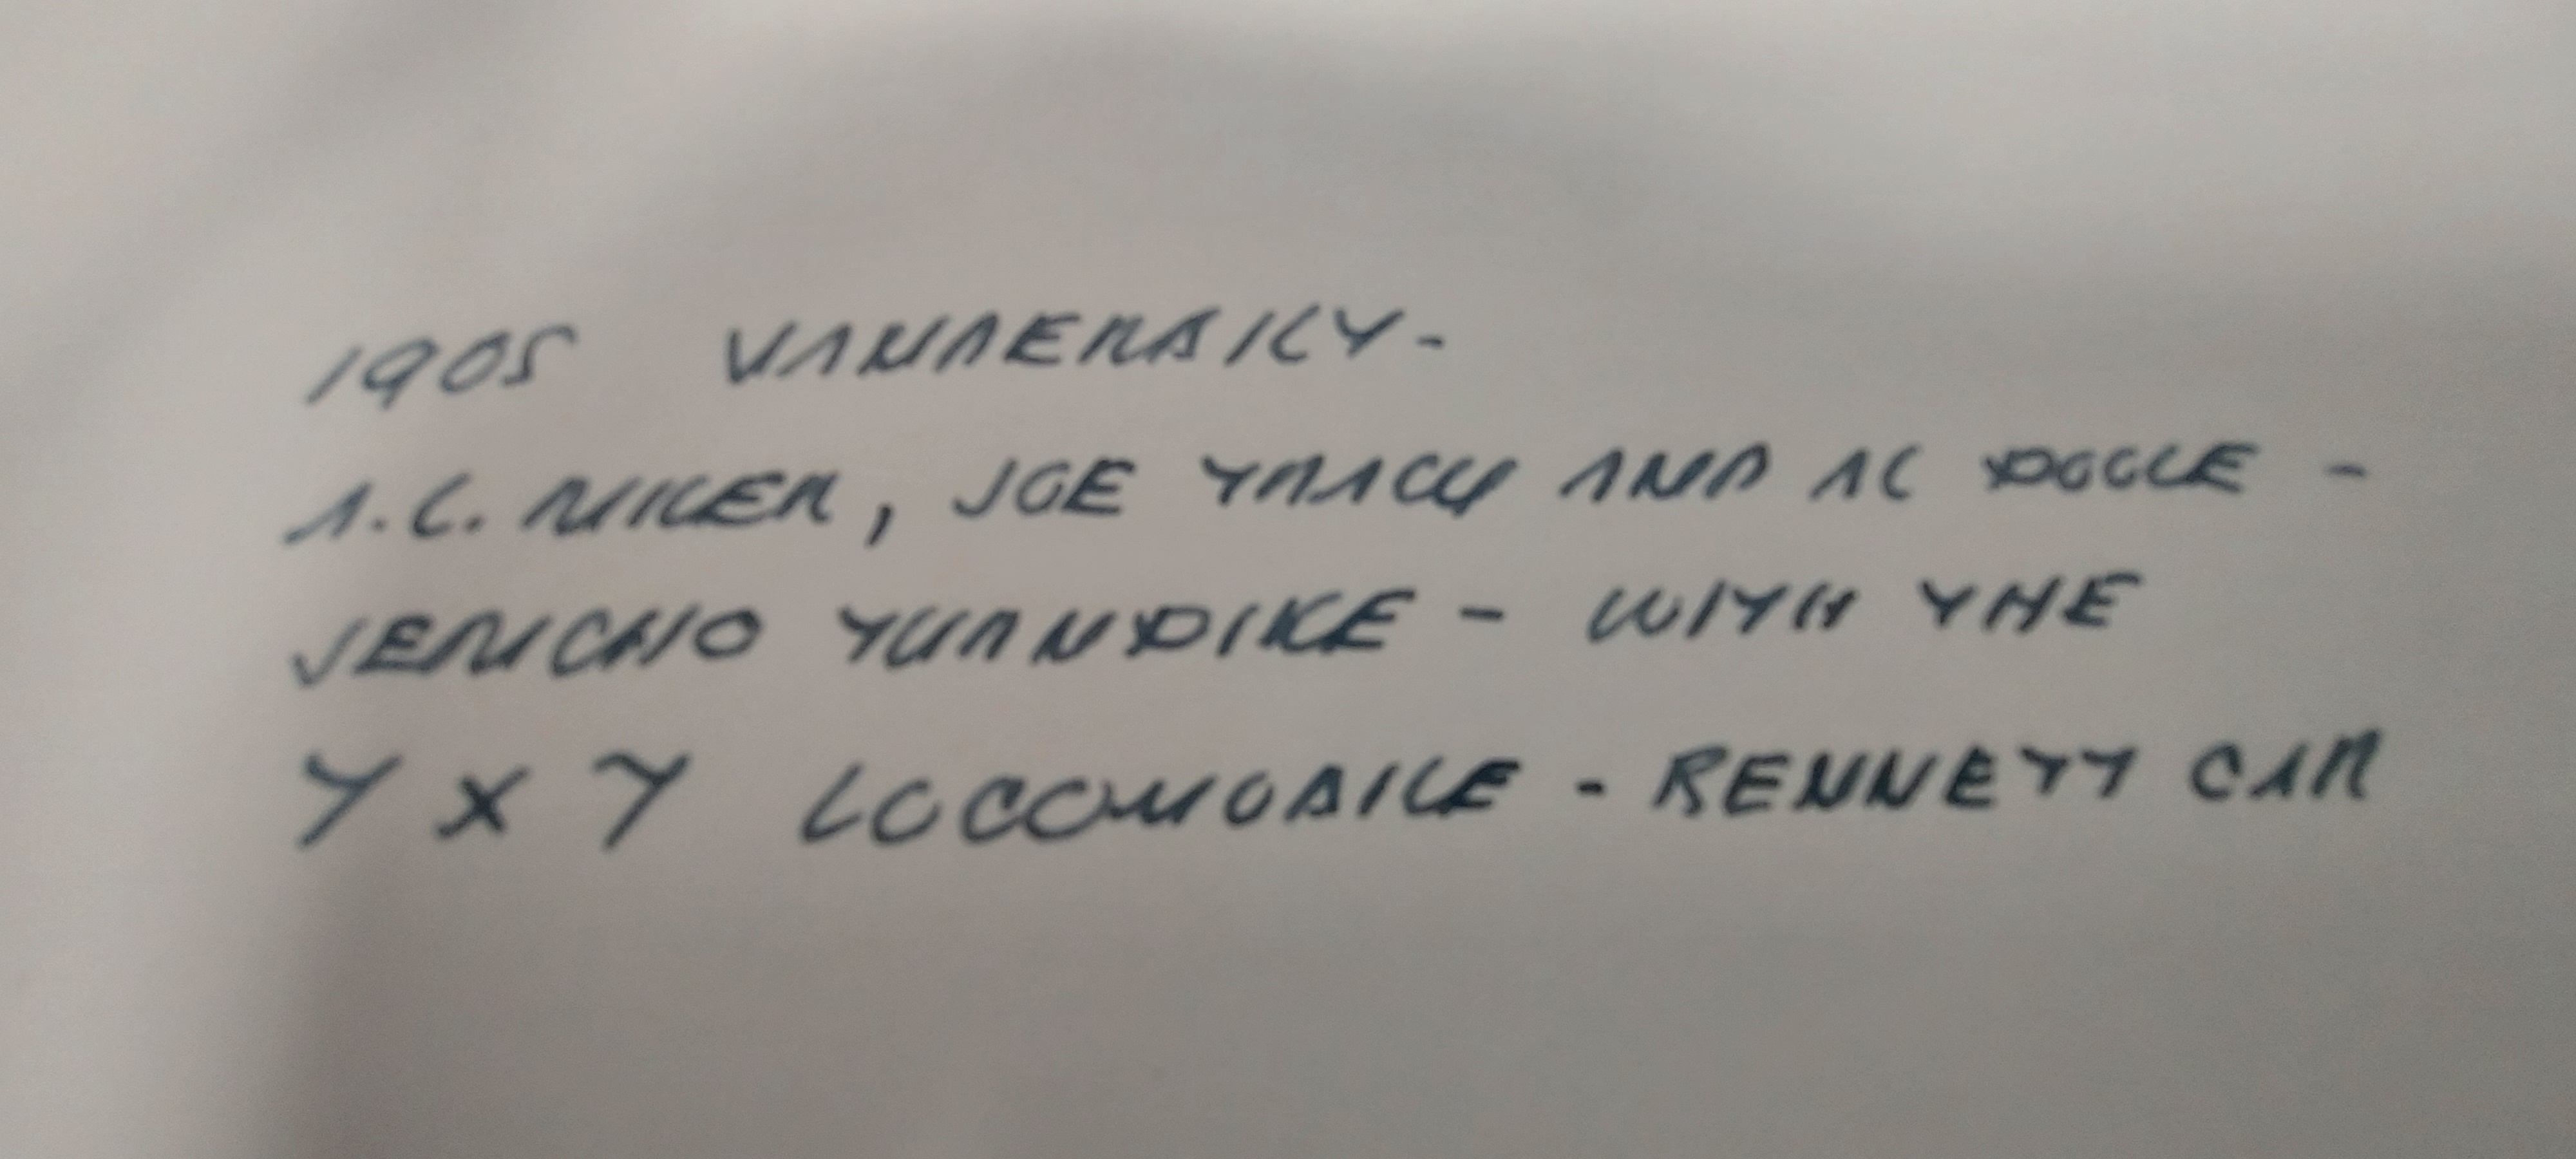 1905 VANDERBILT -
A.L. RIKER, JOE TRACY AND AL POOLE -
JERICHO TURNPIKE - WITH THE
7 X 7 LOCOMOBILE - BENNETT CAR